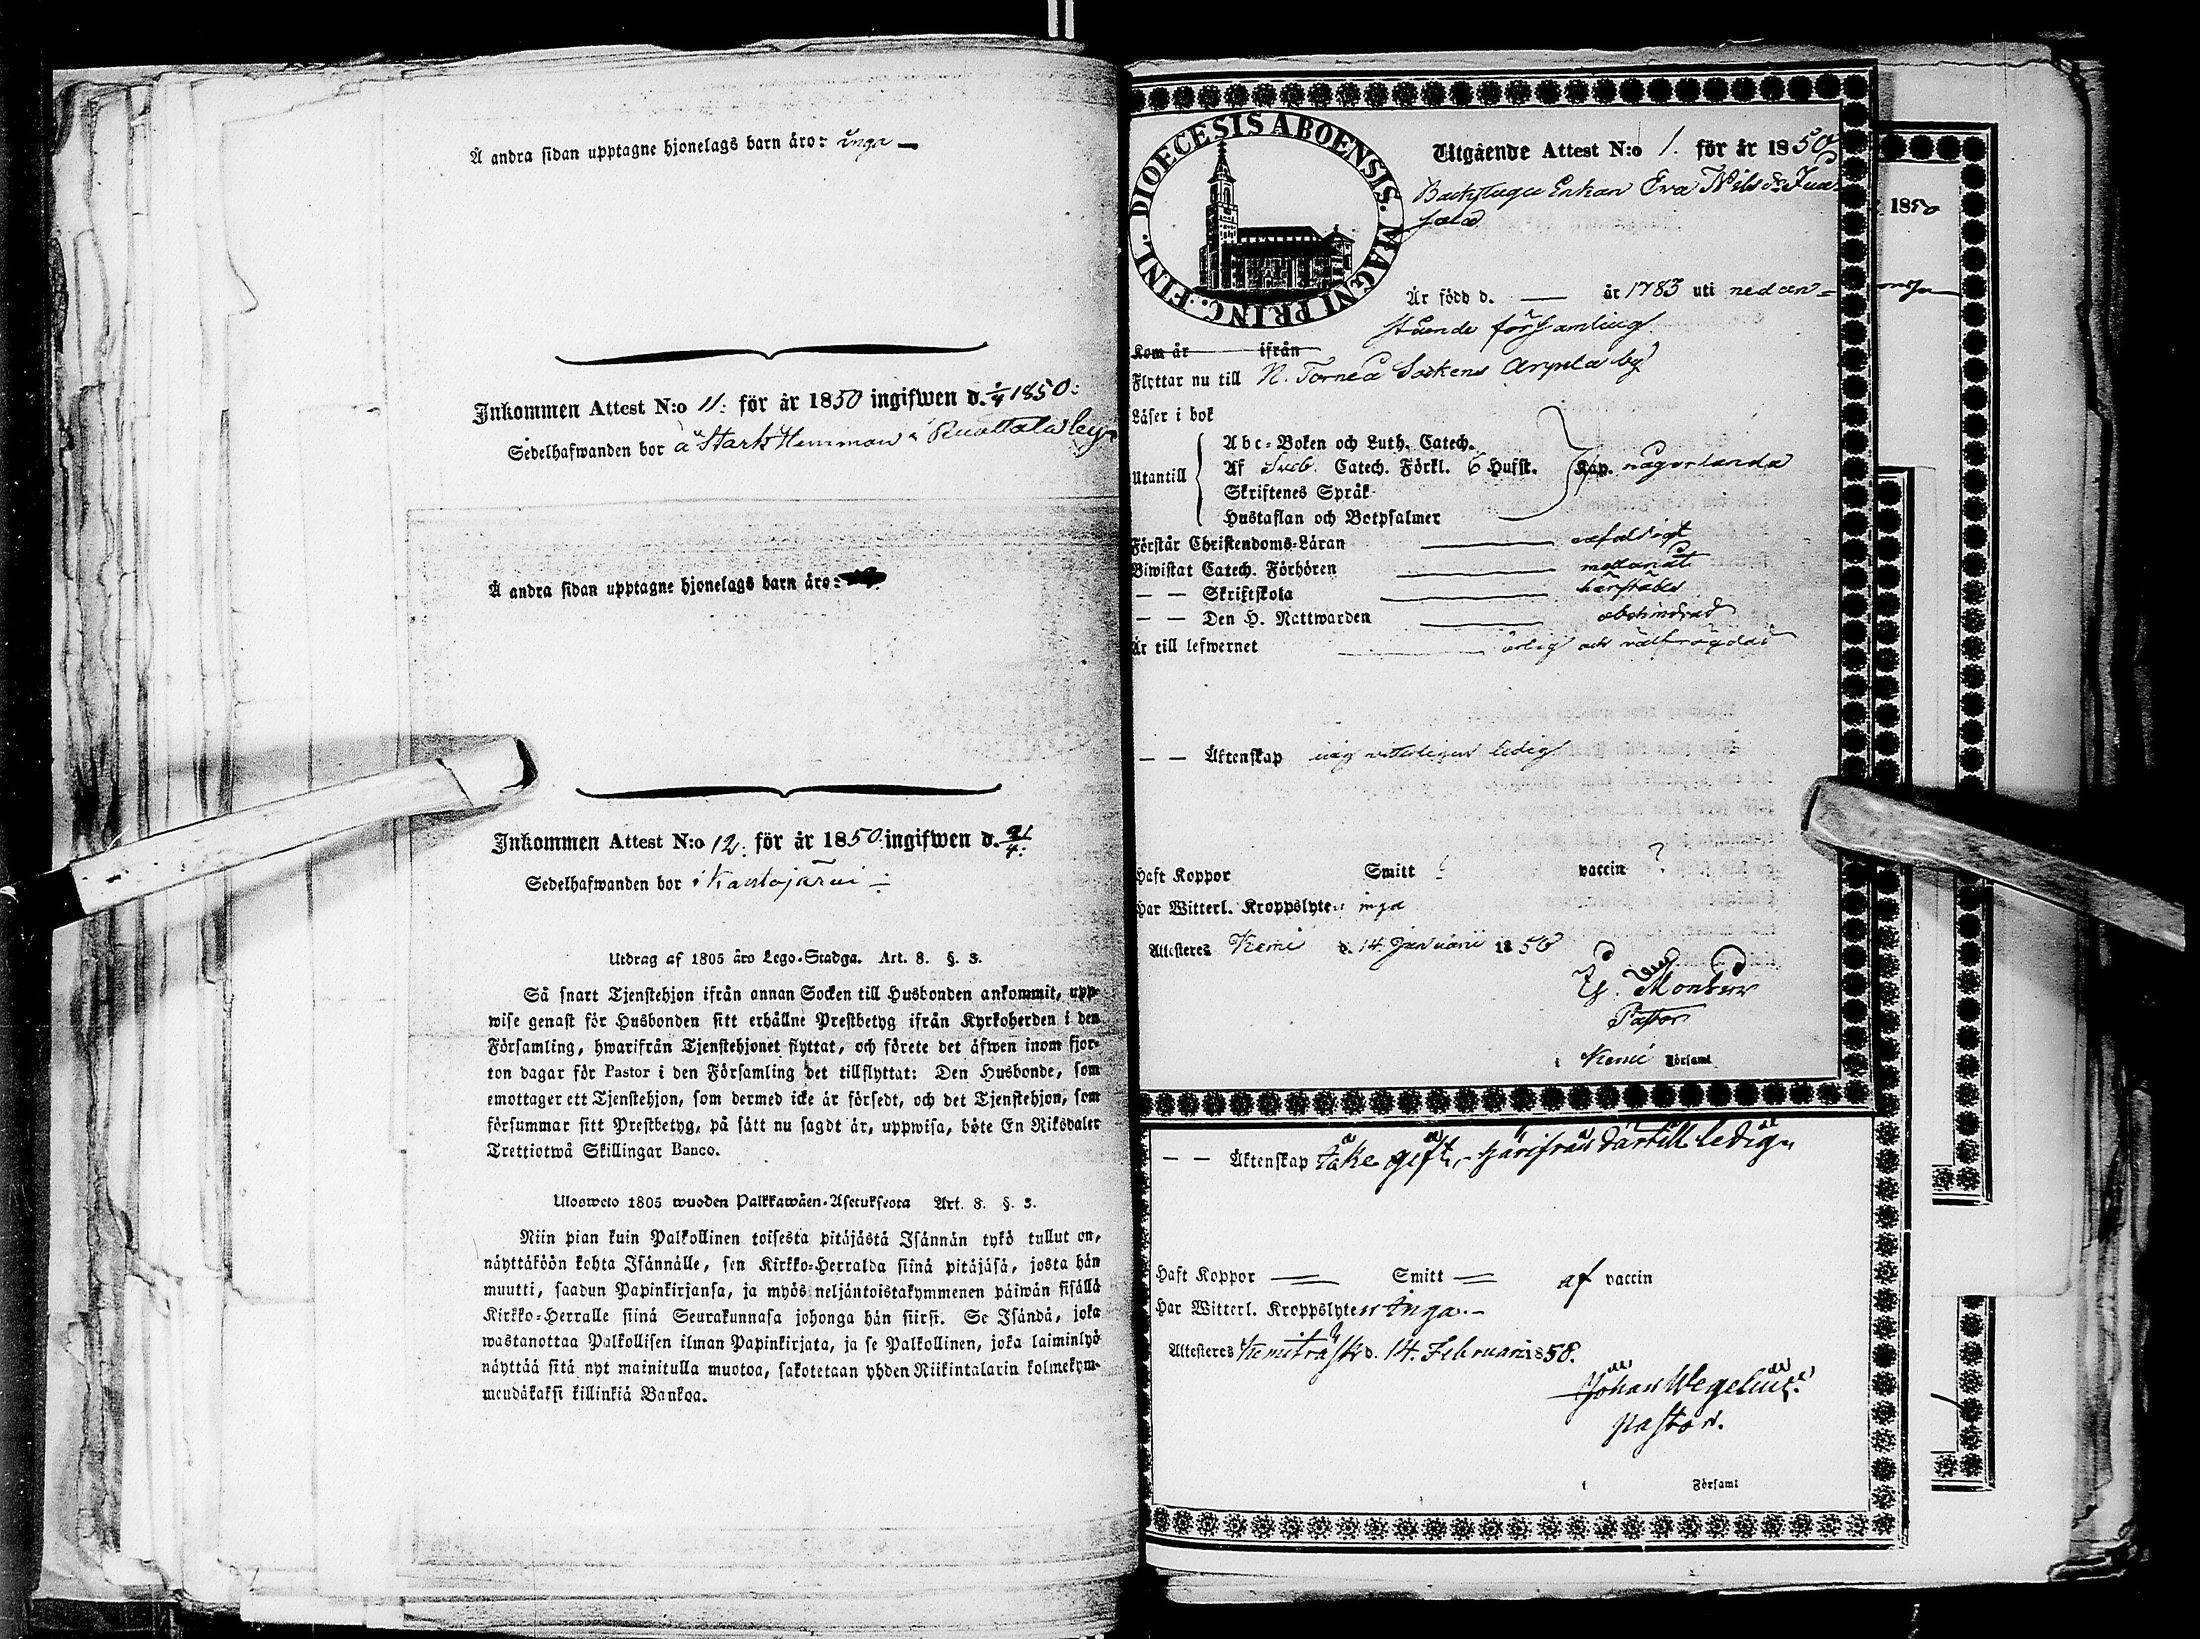 Å andra sidan upptagne hjonelags barn äro: inga —
Inkommen Attest N:o 11: för år 1850 ingifwen d. 1850:
Sedelhafwanden bor å Stark Hemman i Ruottala by
Å andra sidan upptagne hjonelags barn äro:
Inkommen Attest N:o 12: för år 1850 ingifwen d. 21/4.
Sedelhafwanden bor i Kantojärvi
Utdrag af 1805 års Lego-Stadga. Art. 8. §. 3.
Så snart Tjenstehjon ifrån annan Socken till Husbonden ankommit, upp-
wise genast för Husbonden sitt erhållne Prestbetyg ifrån Kyrkoherden i den
Församling, hwarifrån Tjenstehjonet flyttat, och förete det äfwen inom fjor-
ton dagar för Pastor i den Församling det tillflyttat: Den Husbonde, som
emottager ett Tjenstehjon, som dermed icke är försedt, och det Tjenstehjon, som
försummar sitt Prestbetyg, på sätt nu sagdt är, uppwisa, böte En Riksdaler
Trettiotwå Skillingar Banco.
Ulosweto 1805 wuoden Palkkawäen-Asetuksesta Art. 8. §. 3.
Niin pian kuin Palkollinen toisesta pitäjästä Isännän tykö tullut on,
näyttäköön kohta Isännälle, sen Kirkko-Herralda siinä pitäjäsä, josta hän
muutti, saadun Papinkirjansa, ja myös neljäntoistakymmenen päiwän sisällä
Kirkko-Herralle siinä Seurakunnasa johonga hän siirsi. Se Isändä, joka
wastanottaa Palkollisen ilman Papinkirjata, ja se Palkollinen, joka laiminlyö
näyttää sitä nyt mainitulla muotoa, sakotetaan yhden Riikintalarin kolmekym-
mendäkaksi killinkiä Bankoa.
DIOECESIS ABOENSIS. MAGNI PRINC. FINL.
Utgående Attest N:o 1. för år 1850
Backstugu Enkan Eva Nils dr
Är född d. — år 1783 uti nedan=
stående församling
Kom år ifrån
Flyttar nu till N. Torneå Sockens Arpela by
Läser i bok
Utantill
Abc-Boken och Luth. Catech.
Af Sveb. Catech. Förkl. 6 Hufst. Kap. någorlunda
Skriftenes Språk
Hustaflan och Botpsalmer
Förstår Christendoms-Läran
Biwistat Catech. Förhören
— — Skriftskola härstädes
— — Den H. Nattwarden obehindrad
Är till lefwernet ärlig och välfrägdad
— — Äktenskap mig veterligen ledig
Haft Koppor Smitt vaccin ?
Har Witterl. Kroppslyten inga
Attesteres Kemi d. 14 Januari 1850
Pastor
i Kemi Församl
1850
— — Äktenskap icke gift, härifrån därtill ledig.
Haft Koppor — Smitt — af vaccin
Har Witterl. Kroppslyten Inga. –
Attesteres Kemiträsk d. 14. Februari 1850.
Johan Wegelius.
pastor.
i Församl